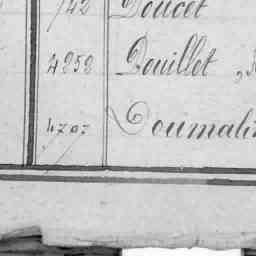 742 Doucet
4252 Douillot
4707 Doumalin